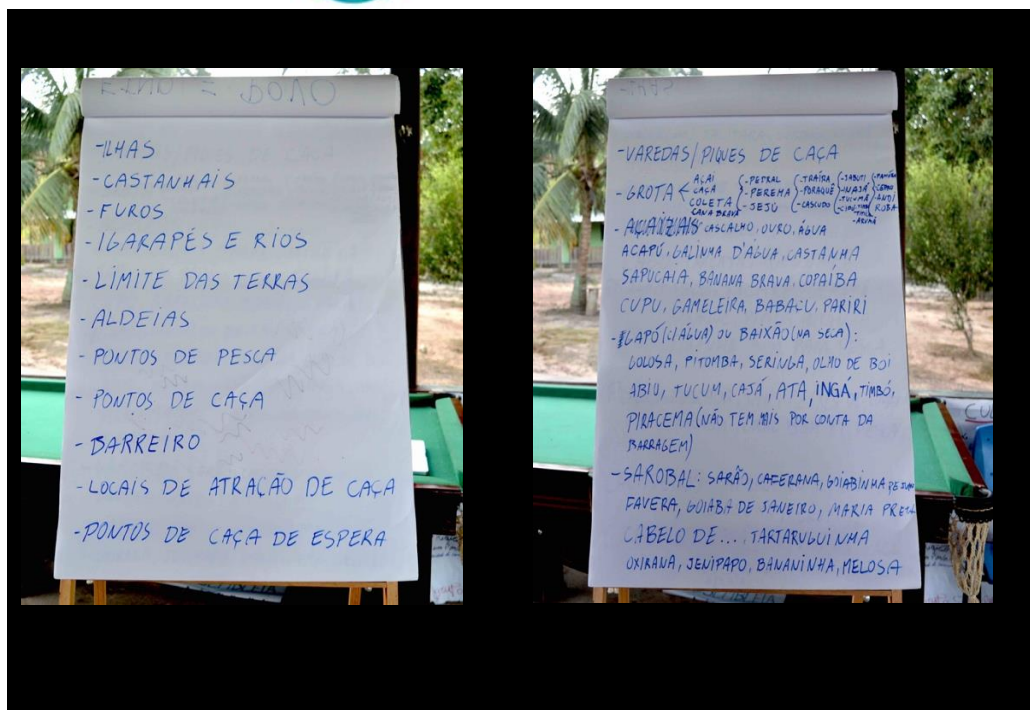 -ILHAS
-CASTANHAIS
-FUROS
-IGARAPÉS E RIOS
-LÍMITE DAS TERRAS
-ALDEIAS
-PONTOS DE PESCA
-PONTOS DE CAÇA
-BARREIRO
-LOCAIS DE ATRAÇÃO DE CAÇA
-PONTOS DE CAÇA DE ESPERA
-VAREDAS/PIQUES DE CAÇA
-GROTA
AÇAÍ
CAÇA
COLETA
CANA BRAVA
-PETRAL
-PEREMA
-SEJÚ
-TRAÍRA
-PORAQUÊ
-CASCUDO
-JABUTI
-INAJÁ
-TUCUMÃ
-ARUMÃ
CEDRO
ANDI
ROBA
-AÇAIZAIS CASCALHO, OURO, ÁGUA
ACAPÚ, GALINHA D'ÁGUA, CASTANHA
SAPUCAIA, BANANA BRAVA, COPAÍBA
CUPU, GAMELEIRA, BABAÇU, PARIRI
-IGAPÓ (C/ÁGUA) OU BAIXÃO (NA SECA):
GOLOSA, PITOMBA, SERINGA, OLHO DE BOI
ABIU, TUCUM, CAJÁ, ATA, INGÁ, TIMBÓ,
PIRACEMA (NÃO TEM MAIS POR CONTA DA
BARRAGEM)
-SAROBAL: SARÃO, CAFERANA, GOIABINHA
FAVERA, GOIABA DE JANEIRO, MARIA PRETA
CABELO DE... TARTARUGUINHA
OXIRANA, JENIPAPO, BANANINHA, MELOSA